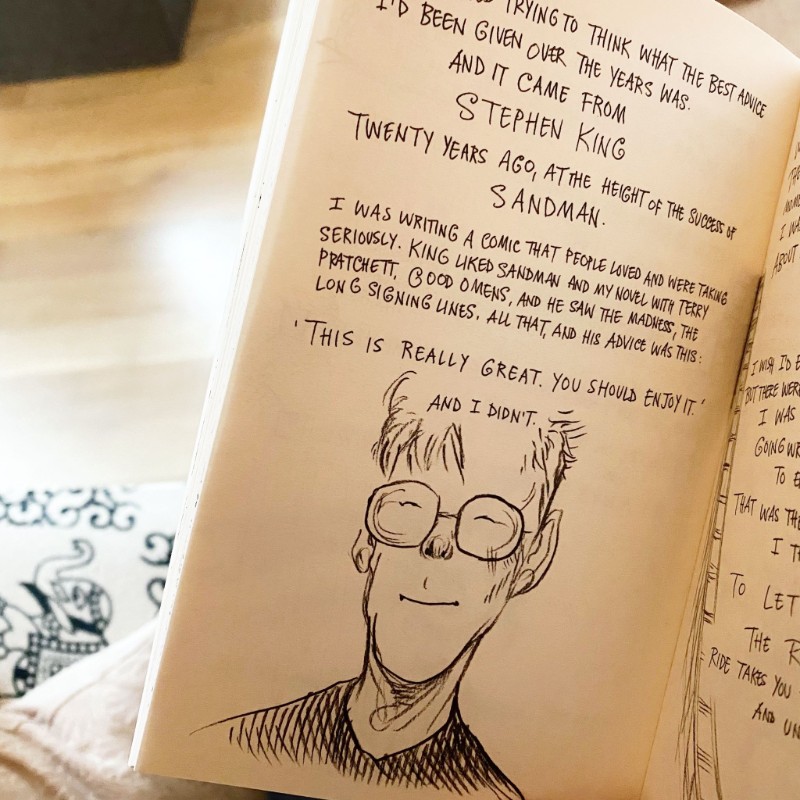 TRYING TO THINK WHAT THE BEST ADVICE
I'D BEEN GIVEN OVER THE YEARS WAS.
AND IT CAME FROM
STEPHEN KING
TWENTY YEARS AGO, AT THE HEIGHT OF THE SUCCESS OF
SANDMAN.
I WAS WRITING A COMIC THAT PEOPLE LOVED AND WERE TAKING
SERIOUSLY. KING LIKED SANDMAN AND MY NOVEL WITH TERRY
PRATCHETT, GOOD OMENS, AND HE SAW THE MADNESS, THE
LONG SIGNING LINES, ALL THAT, AND HIS ADVICE WAS THIS:
'THIS IS REALLY GREAT. YOU SHOULD ENJOY IT.'
AND I DIDN'T.
ABOUT
I WISH I'D
BUT THERE WERE
I WAS
GOING
TO
THAT WAS
I
TO LET
THE
RIDE TAKES YOU
AND